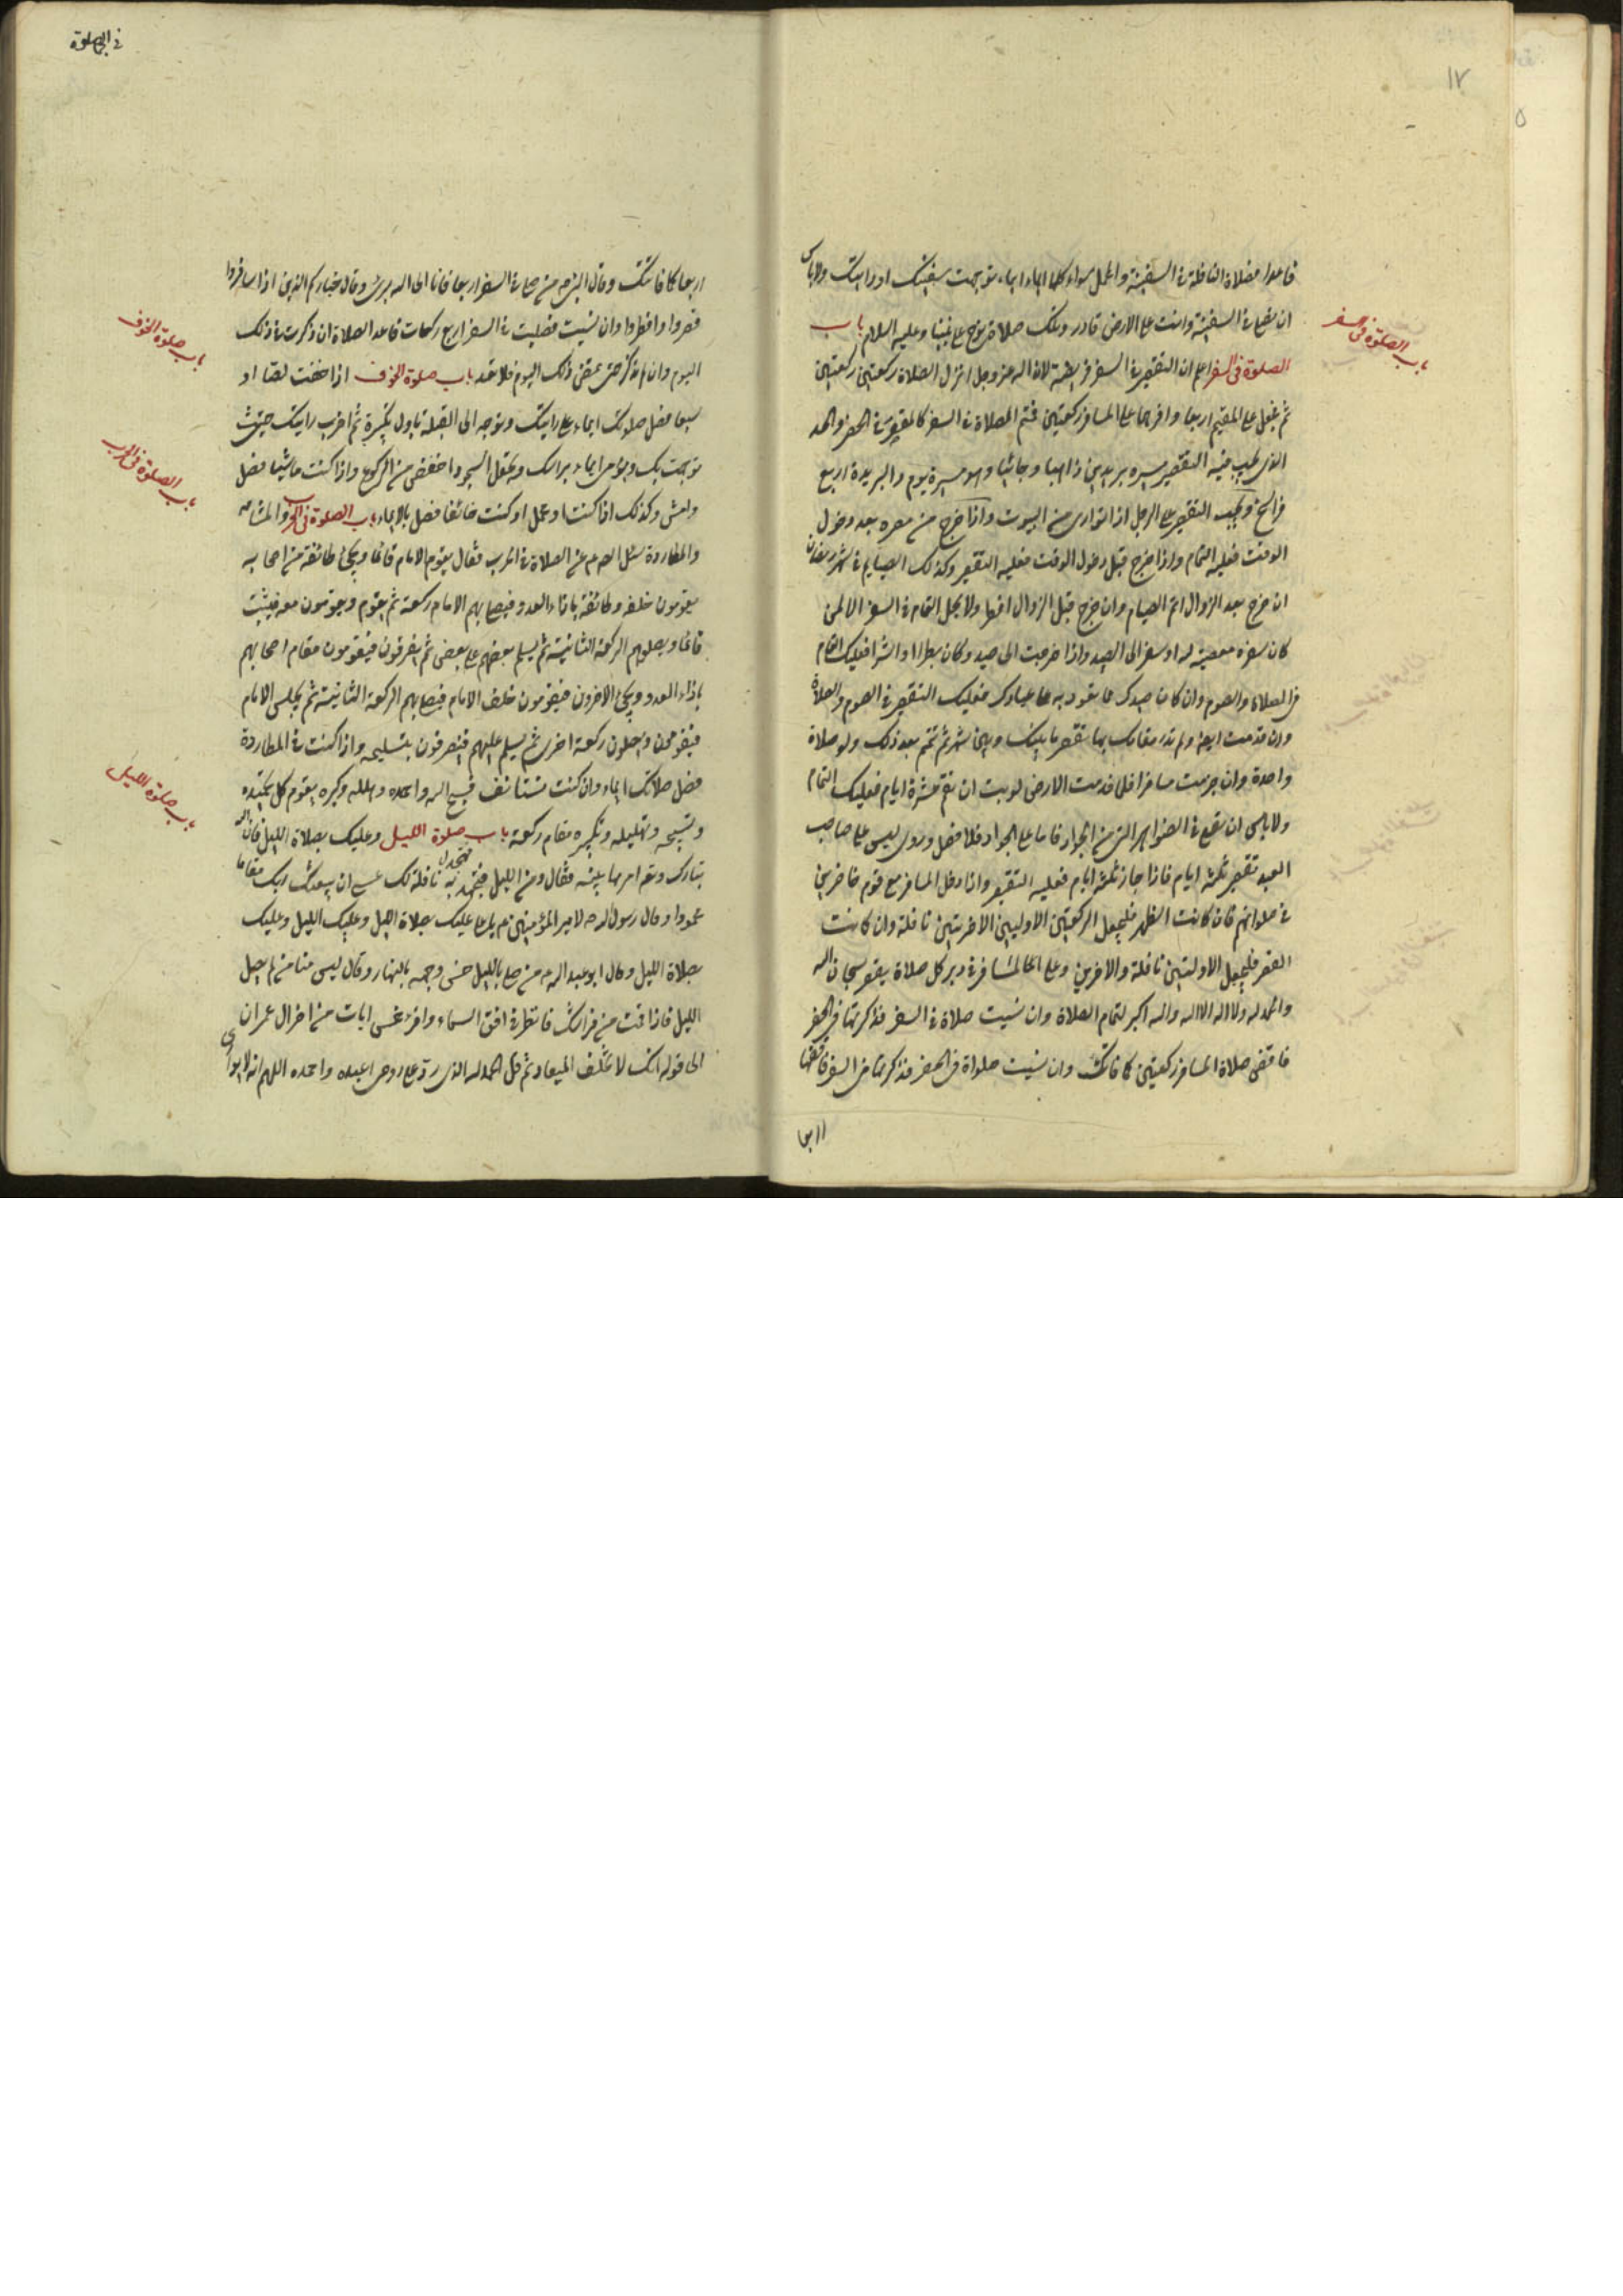 ١٢
قاعدا فصلاة النافلة في السفينة والمحمل سواء كلها ايماء اينما توجهت سفينتك او دابتك ولا باس
باب الصلوة فى السفر
ان تصلى في السفينة وانت على الارض قادر وتلك صلاة نوح على نبينا وعليه السلام باب
الصلوة فى السفر اعلم ان التقصير في السفر فريضة لان الله عز وجل انزل الصلاة ركعتين ركعتين
ثم جعل على المقيم اربعا واقرهما على المسافر ركعتين فتم الصلاة في السفر كالمقصر في الحضر والحد
الذى يجب فيه التقصير مسيره بريدين ذاهبا وجائيا وهو مسيرة يوم والبريدة اربع
فراسخ ويجب التقصير على الرجل اذا توارى من البيوت واذا خرج من مصره بعد دخول
الوقت فعليه التمام واذا خرج قبل دخول الوقت فعليه التقصير وكذلك الصيام في شهر رمضان
ان خرج بعد الزوال اتم الصيام وان خرج قبل الزوال افطر ولا يحل التمام في السفر الا لمن
كان سفره معصية لله او سفر الى الصيد واذا خرجت الى صيد وكان بطرا او اشرا فعليك التمام
فى الصلاة والصوم وان كان صيدك مما تعود به على عيالك فعليك التقصير في الصوم والصلاة
وان قدمت ارضا ولم تدر مقامك بها تقصر ما بينك وبين شهر ثم تتم بعد ذلك ولو صلاة
واحدة وان خرجت مسافرا فلما قدمت الارض نويت ان تقيم عشرة ايام فعليك التمام
ولا باس ان تصلى في الظواهر التى من الجواد فاما على الجواد فلا تصل وروى ليس على صاحب
الصيد تقصير ثلثة ايام فاذا جاز ثلثة ايام فعليه التقصير واذا دخل المسافر مع قوم حاضرين
في صلواتهم فان كانت الظهر فليجعل الركعتين الاوليين الاخريتين نافلة وان كانت
العصر فليجعل الاوليتين نافلة والاخرين وعلى المسافر في دبر كل صلاة يقصر سبحان الله
والحمد لله ولا اله الا الله والله اكبر لتمام الصلاة وان نسيت صلاة في السفر فذكرتها فى الحضر
فاقض صلاة المسافر ركعتين كما فاتتك وان نسيت صلواة فى الحضر فذكرتها فى السفر فاقضها
اربعا
في الصلوة
اربعا كما فاتتك وقال النبى ص من صلى في السفر اربعا فانا الى الله برئ وقال خياركم الذين اذا سافروا
قصروا وافطروا وان نسيت فصليت في السفر اربع ركعات فاعد الصلاة ان ذكرت في ذلك
باب صلوة الخوف
اليوم وان لم تذكر حتى يمضى ذلك اليوم فلا تعد باب صلوة الخوف اذا خفت لصا او
سبعا فصل صلوتك ايماء على دابتك وتوجه الى القبلة باول تكبيرة ثم اضرب دابتك حيث
باب الصلوة فى الحرب
توجهت بك وتومى ايماء براسك وتجعل السجود اخفض من الركوع واذا كنت ماشيا فصل
وامش وكذلك اذا كنت او محمل او كنت خائفا فصل بالايماء باب الصلوة فى الحرب والمسايفة
والمطاردة سئل الصادق ع عن الصلاة في الحرب فقال يقوم الامام قائما ويجئ طائفة من اصحابه
يقومون خلفه وطائفة بازاء العدو فيصلى بهم الامام ركعة ثم يقوم ويقومون معه فيثبت
قائما ويصلوهم الركعة الثانية ثم يسلم بعضهم على بعض ثم ينصرفون فيقومون مقام اصحابهم
بازاء العدو ويجئ الاخرون فيقومون خلف الامام فيصلى بهم الركعة الثانية ثم يجلس الامام
فيقومون ويصلون ركعة اخرى ثم يسلم عليهم فينصرفون بتسليمه واذا كنت في المطاردة
باب صلوة الليل
فصل صلاتك ايماء وان كنت مستايف فسبح الله واحمده وهلله وكبره يقوم كل تحميدة
وتسبيحة وتهليلة وتكبيره مقام ركعة باب صلوة الليل وعليك بصلاة الليل فان الله
تبارك وتعالى امر بها نبيه فقال ومن الليل فتهجد به نافلة لك عسى ان يبعثك ربك مقاما
محمودا وقال رسول الله ص لامير المؤمنين ع يا على عليك بصلاة الليل وعليك بصلاة الليل وعليك
بصلاة الليل وقال ابو عبد الله ع من صلى بالليل حسن وجهه بالنهار وقال ليس منا من لم يصل
الليل فاذا قمت من فراشك فانظر في افق السماء واقرء خمس ايات من اخر ال عمران
الى قوله انك لا تخلف الميعاد ثم قل الحمد لله الذى رد على روحى اعبده واحمده اللهم انه لا يوارى